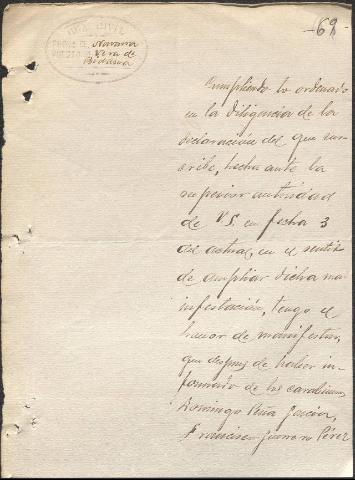 69
CIVIL
Navarra
Vera de
Bidasoa
Cumpliendo lo ordenado
en la diligencia de la
declaración del que sus-
cribe, hecha ante la
superior autoridad
de V.S. en fecha 3
del actual, en el sentido
de ampliar dicha ma-
nifestación, tengo el
honor de manifestar,
que después de haber in-
formado de los carabineros
Domingo Peña García,
Francisco Guerrero Pérez